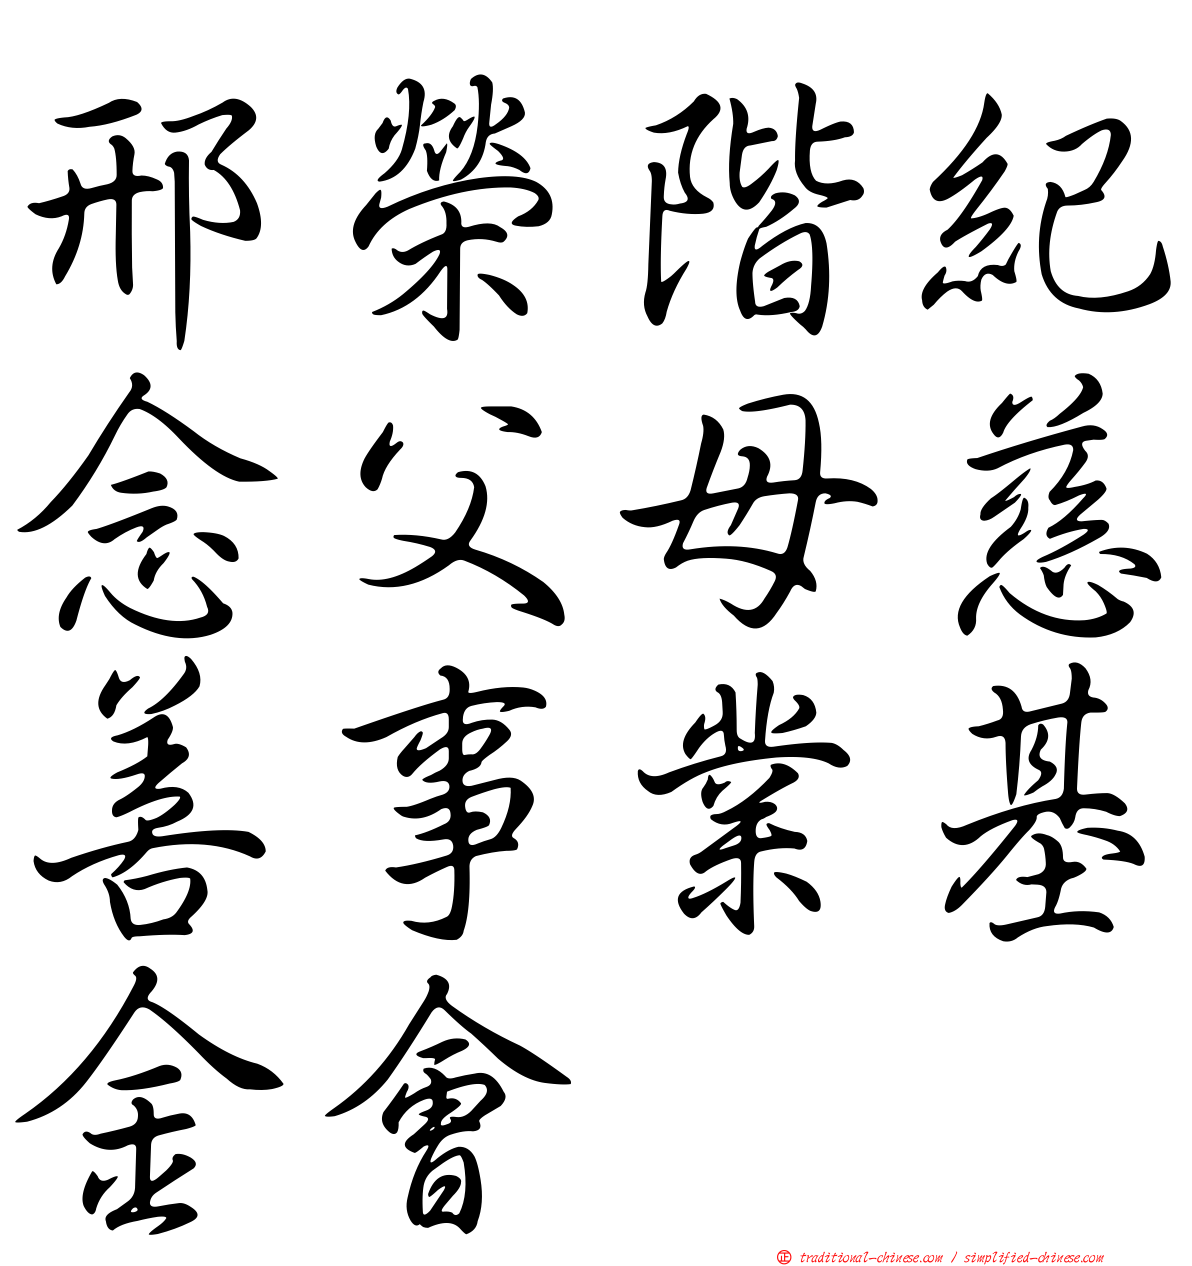 邢榮階紀
念父母慈
善事業基
金會
正 traditional-chinese.com / simplified-chinese.com